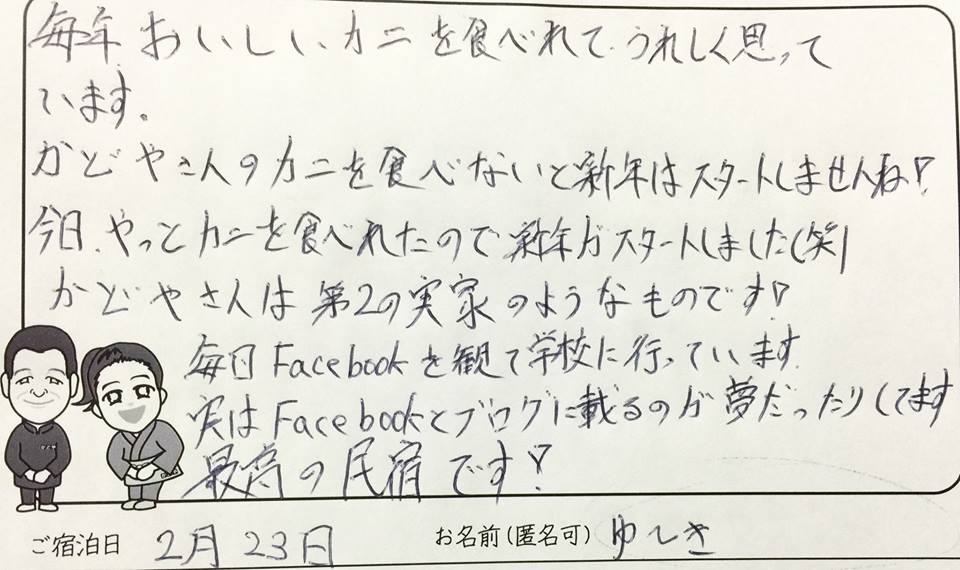 毎年、おいしいカニを食べれて、うれしく思って
います。
かどやさんのカニを食べないと新年はスタートしませんね!
今日、やっとカニを食べれたので新年がスタートしました(笑)
かどやさんは第2の実家のようなものです!
毎日Facebookを観て学校に行っています
実はFacebookとブログに載るのが夢だったりしてます
最高の民宿です!
ご宿泊日 2月23日 お名前(匿名可) ゆうき